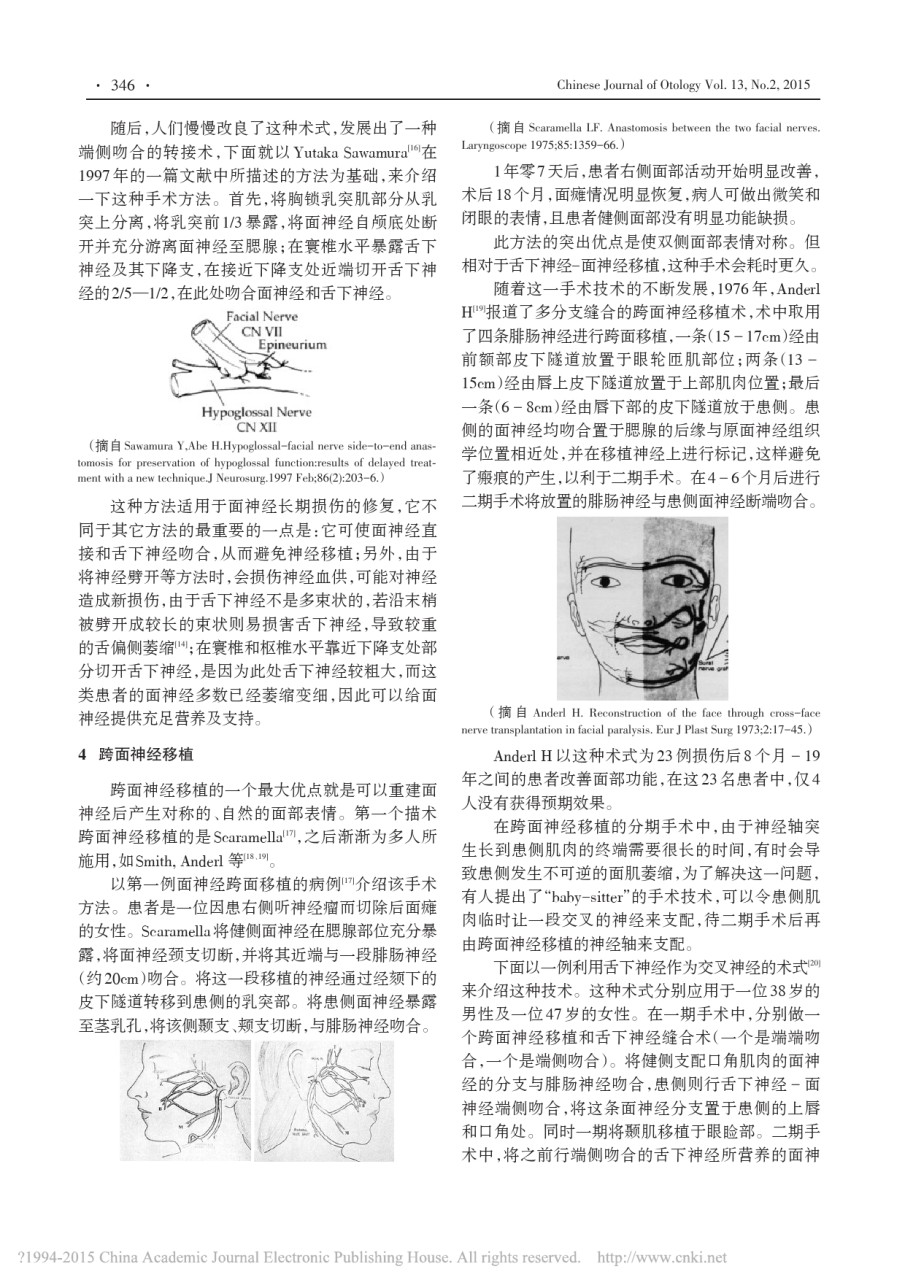 · 346 ·
Chinese Journal of Otology Vol. 13, No.2, 2015
随后,人们慢慢改良了这种术式,发展出了一种
端侧吻合的转接术,下面就以 Yutaka Sawamura[16]在
1997年的一篇文献中所描述的方法为基础,来介绍
一下这种手术方法。首先,将胸锁乳突肌部分从乳
突上分离,将乳突前1/3暴露,将面神经自颅底处断
开并充分游离面神经至腮腺;在寰椎水平暴露舌下
神经及其下降支,在接近下降支处近端切开舌下神
经的2/5—1/2,在此处吻合面神经和舌下神经。
Facial Nerve
CN VII
Epineurium
Hypoglossal Nerve
CN XII
(摘自 Sawamura Y,Abe H.Hypoglossal-facial nerve side-to-end anas-
tomosis for preservation of hypoglossal function:results of delayed treat-
ment with a new technique.J Neurosurg.1997 Feb;86(2):203-6.)
这种方法适用于面神经长期损伤的修复,它不
同于其它方法的最重要的一点是:它可使面神经直
接和舌下神经吻合,从而避免神经移植;另外,由于
将神经劈开等方法时,会损伤神经血供,可能对神经
造成新损伤,由于舌下神经不是多束状的,若沿末梢
被劈开成较长的束状则易损害舌下神经,导致较重
的舌偏侧萎缩[14];在寰椎和枢椎水平靠近下降支处部
分切开舌下神经,是因为此处舌下神经较粗大,而这
类患者的面神经多数已经萎缩变细,因此可以给面
神经提供充足营养及支持。
4 跨面神经移植
跨面神经移植的一个最大优点就是可以重建面
神经后产生对称的、自然的面部表情。第一个描术
跨面神经移植的是Scaramella[17],之后渐渐为多人所
施用,如Smith, Anderl 等[18,19]。
以第一例面神经跨面移植的病例[17]介绍该手术
方法。患者是一位因患右侧听神经瘤而切除后面瘫
的女性。Scaramella将健侧面神经在腮腺部位充分暴
露,将面神经颈支切断,并将其近端与一段腓肠神经
(约20cm)吻合。将这一段移植的神经通过经颏下的
皮下隧道转移到患侧的乳突部。将患侧面神经暴露
至茎乳孔,将该侧颞支、颊支切断,与腓肠神经吻合。
(摘自 Scaramella LF. Anastomosis between the two facial nerves.
Laryngoscope 1975;85:1359-66.)
1年零7天后,患者右侧面部活动开始明显改善,
术后18个月,面瘫情况明显恢复,病人可做出微笑和
闭眼的表情,且患者健侧面部没有明显功能缺损。
此方法的突出优点是使双侧面部表情对称。但
相对于舌下神经-面神经移植,这种手术会耗时更久。
随着这一手术技术的不断发展,1976年,Anderl
H[19]报道了多分支缝合的跨面神经移植术,术中取用
了四条腓肠神经进行跨面移植,一条(15-17cm)经由
前额部皮下隧道放置于眼轮匝肌部位;两条(13-
15cm)经由唇上皮下隧道放置于上部肌肉位置;最后
一条(6-8cm)经由唇下部的皮下隧道放于患侧。患
侧的面神经均吻合置于腮腺的后缘与原面神经组织
学位置相近处,并在移植神经上进行标记,这样避免
了瘢痕的产生,以利于二期手术。在4-6个月后进行
二期手术将放置的腓肠神经与患侧面神经断端吻合。
(摘自 Anderl H. Reconstruction of the face through cross-face
nerve transplantation in facial paralysis. Eur J Plast Surg 1973;2:17-45.)
Anderl H以这种术式为23例损伤后8个月-19
年之间的患者改善面部功能,在这23名患者中,仅4
人没有获得预期效果。
在跨面神经移植的分期手术中,由于神经轴突
生长到患侧肌肉的终端需要很长的时间,有时会导
致患侧发生不可逆的面肌萎缩,为了解决这一问题,
有人提出了“baby-sitter”的手术技术,可以令患侧肌
肉临时让一段交叉的神经来支配,待二期手术后再
由跨面神经移植的神经轴来支配。
下面以一例利用舌下神经作为交叉神经的术式[20]
来介绍这种技术。这种术式分别应用于一位38岁的
男性及一位47岁的女性。在一期手术中,分别做一
个跨面神经移植和舌下神经缝合术(一个是端端吻
合,一个是端侧吻合)。将健侧支配口角肌肉的面神
经的分支与腓肠神经吻合,患侧则行舌下神经-面
神经端侧吻合,将这条面神经分支置于患侧的上唇
和口角处。同时一期将颞肌移植于眼睑部。二期手
术中,将之前行端侧吻合的舌下神经所营养的面神
?1994-2015 China Academic Journal Electronic Publishing House. All rights reserved. http://www.cnki.net